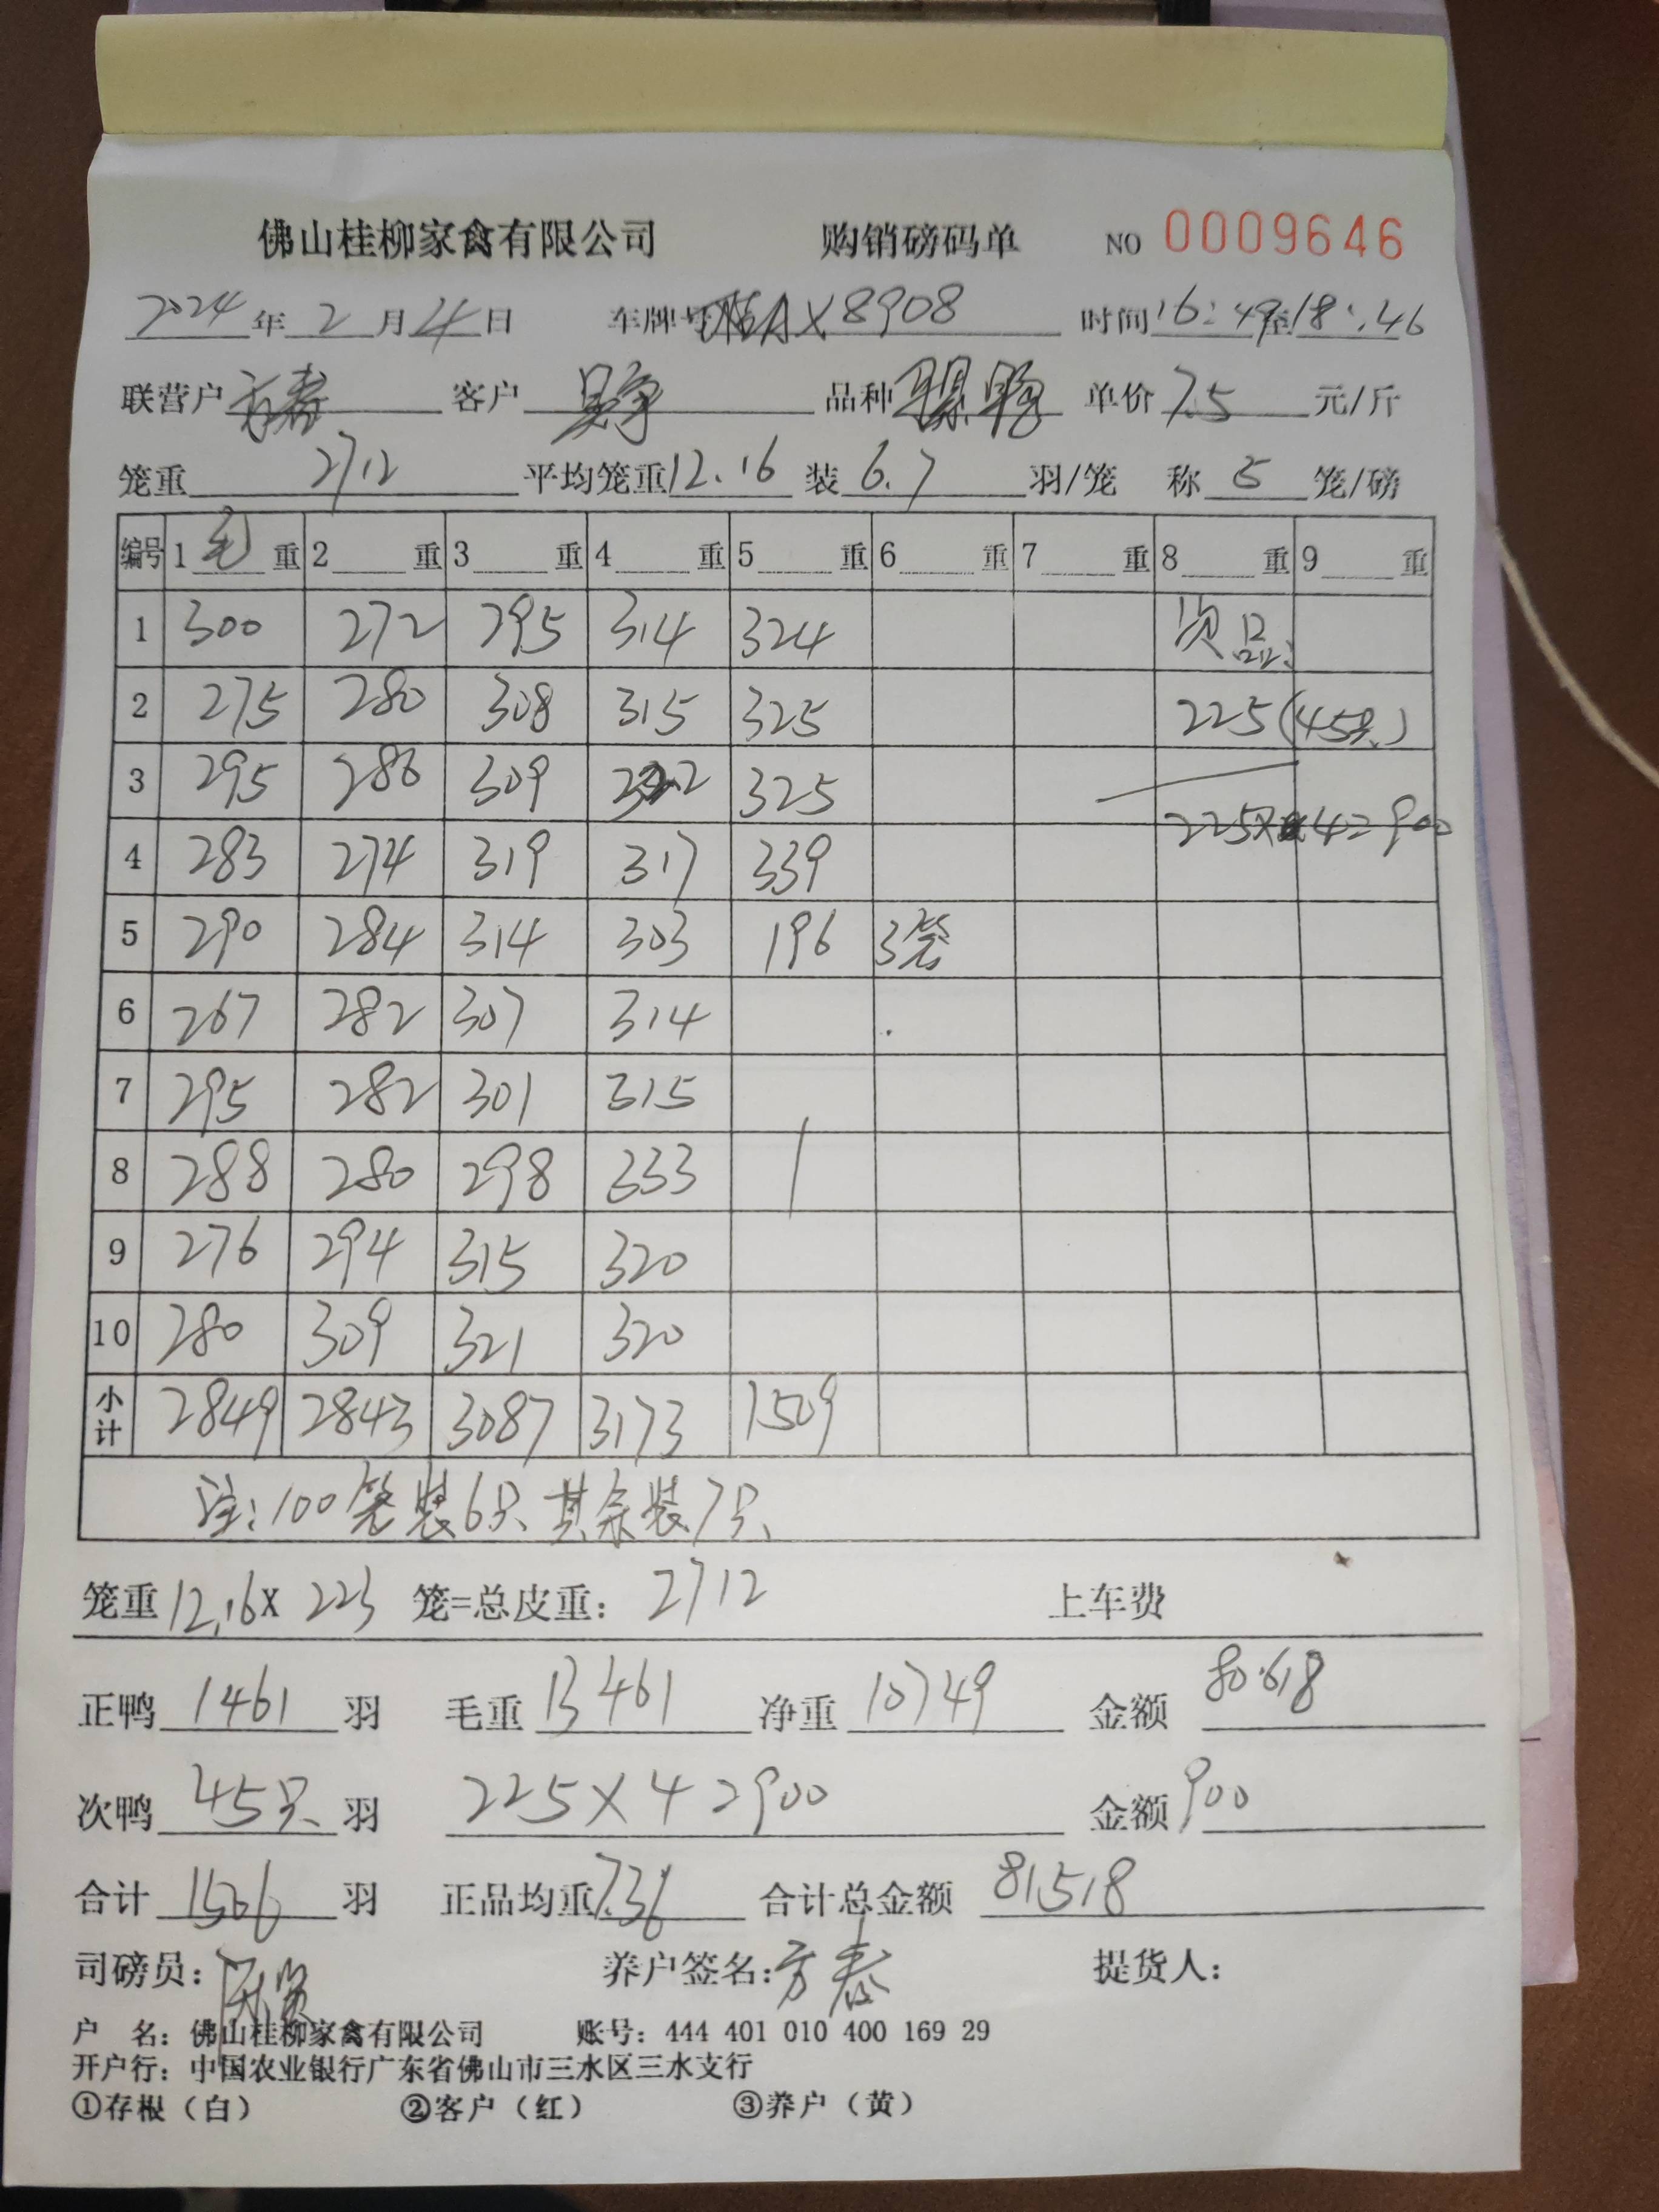 佛山桂柳家禽有限公司 购销磅码单 NO 0009646
2024年2月4日 车牌号 X8908 时间16:49至18:46
联营户 方春 客户 品种 单价7.5元/斤
笼重2712 平均笼重12.16 装6.7羽/笼 称5笼/磅
编号 1毛重 2 重 3 重 4 重 5 重 6 重 7 重 8 重 9 重
1 300 272 295 314 324 次品:
2 275 280 308 315 325 225(45只)
3 295 286 309 322 325
225×4=900
4 283 274 319 317 339
5 290 284 314 303 196 3笼
6 267 282 307 314
7 295 282 301 315
8 288 280 298 333
9 276 294 315 320
10 280 309 321 320
小计 2849 2843 3087 3173 1509
注:100笼装6只 其余装7只
笼重12.16× 223 笼=总皮重: 2712 上车费
正鸭1461羽 毛重13461 净重10749 金额80618
次鸭45只羽 225×4=900 金额900
合计1506羽 正品均重7.36 合计总金额81518
司磅员: 养户签名:方春 提货人:
户 名: 佛山桂柳家禽有限公司 账号: 444 401 010 400 169 29
开户行: 中国农业银行广东省佛山市三水区三水支行
①存根(白) ②客户(红) ③养户(黄)